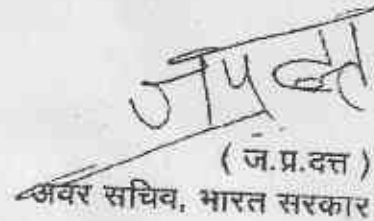 जप्रदत्त
( ज.प्र.दत्त )
अवर सचिव, भारत सरकार